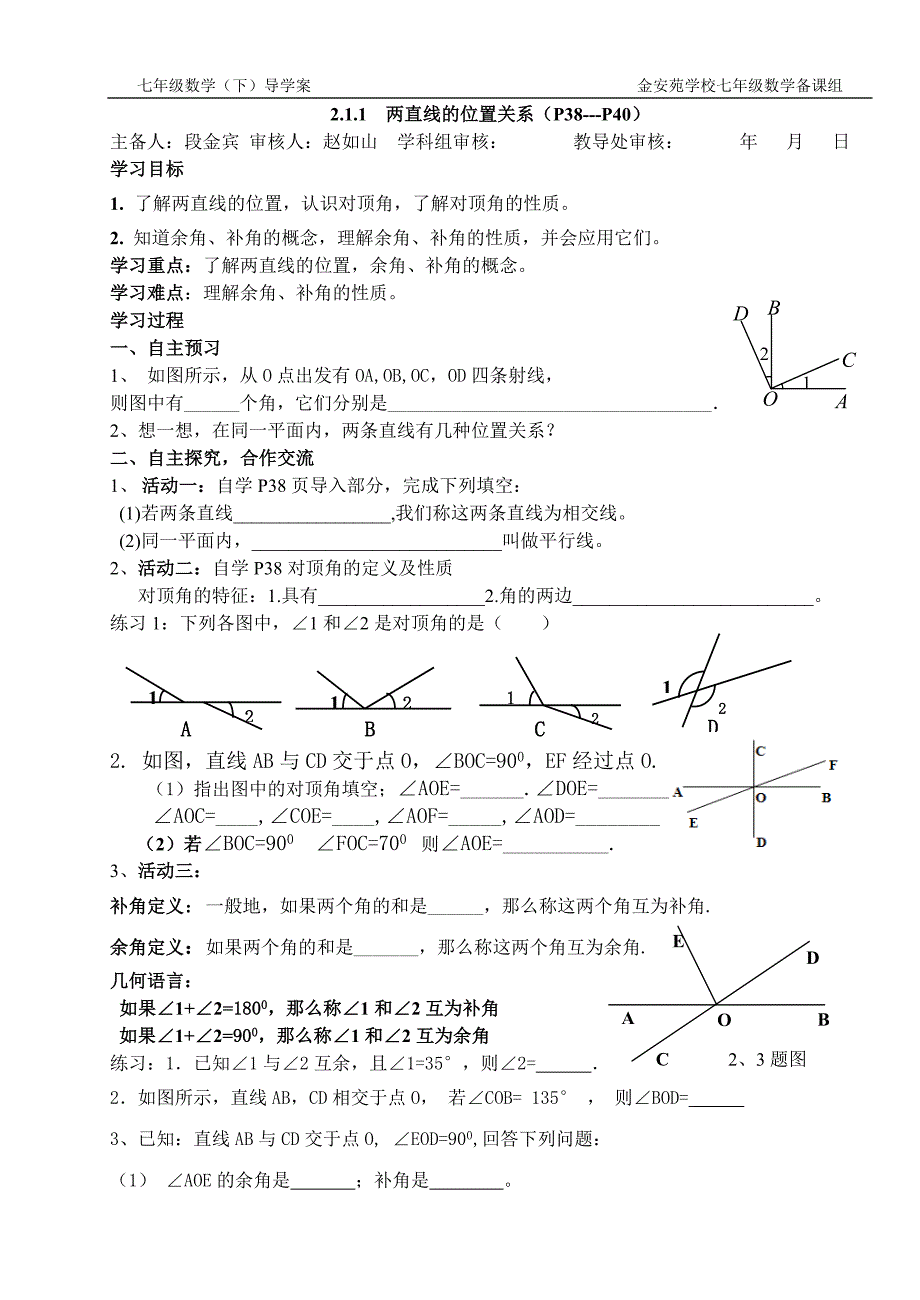 七年级数学（下）导学案 金安苑学校七年级数学备课组
2.1.1 两直线的位置关系（P38---P40）
主备人：段金宾 审核人：赵如山 学科组审核： 教导处审核： 年 月 日
学习目标
1. 了解两直线的位置，认识对顶角，了解对顶角的性质。
2. 知道余角、补角的概念，理解余角、补角的性质，并会应用它们。
学习重点：了解两直线的位置，余角、补角的概念。
学习难点：理解余角、补角的性质。
学习过程
一、自主预习
1、 如图所示，从O点出发有OA,OB,OC，OD四条射线，
则图中有______个角，它们分别是___________________________________．
D B
2 C
1
O A
2、想一想，在同一平面内，两条直线有几种位置关系？
二、自主探究，合作交流
1、活动一：自学P38页导入部分，完成下列填空：
(1)若两条直线_________________,我们称这两条直线为相交线。
(2)同一平面内，___________________________叫做平行线。
2、活动二：自学P38对顶角的定义及性质
对顶角的特征：1.具有__________________2.角的两边__________________________。
练习1：下列各图中，∠1和∠2是对顶角的是（ ）
1 2 1 2 1 2 1 2
A B C D
2. 如图，直线AB与CD交于点O，∠BOC=90⁰，EF经过点O.
（1）指出图中的对顶角填空；∠AOE=______.∠DOE=_______
∠AOC=____,∠COE=____,∠AOF=_____,∠AOD=________
（2）若∠BOC=90⁰ ∠FOC=70⁰ 则∠AOE=__________.
C F
A O B
E
D
3、活动三：
补角定义：一般地，如果两个角的和是______，那么称这两个角互为补角.
余角定义：如果两个角的和是_______，那么称这两个角互为余角.
几何语言：
如果∠1+∠2=180⁰，那么称∠1和∠2互为补角
如果∠1+∠2=90⁰，那么称∠1和∠2互为余角
E D
A O B
C 2、3题图
练习：1．已知∠1与∠2互余，且∠1=35°，则∠2=______．
2．如图所示，直线AB，CD相交于点O， 若∠COB= 135° ， 则∠BOD=______
3、已知：直线AB与CD交于点O, ∠EOD=90⁰,回答下列问题：
（1） ∠AOE的余角是_______；补角是________。